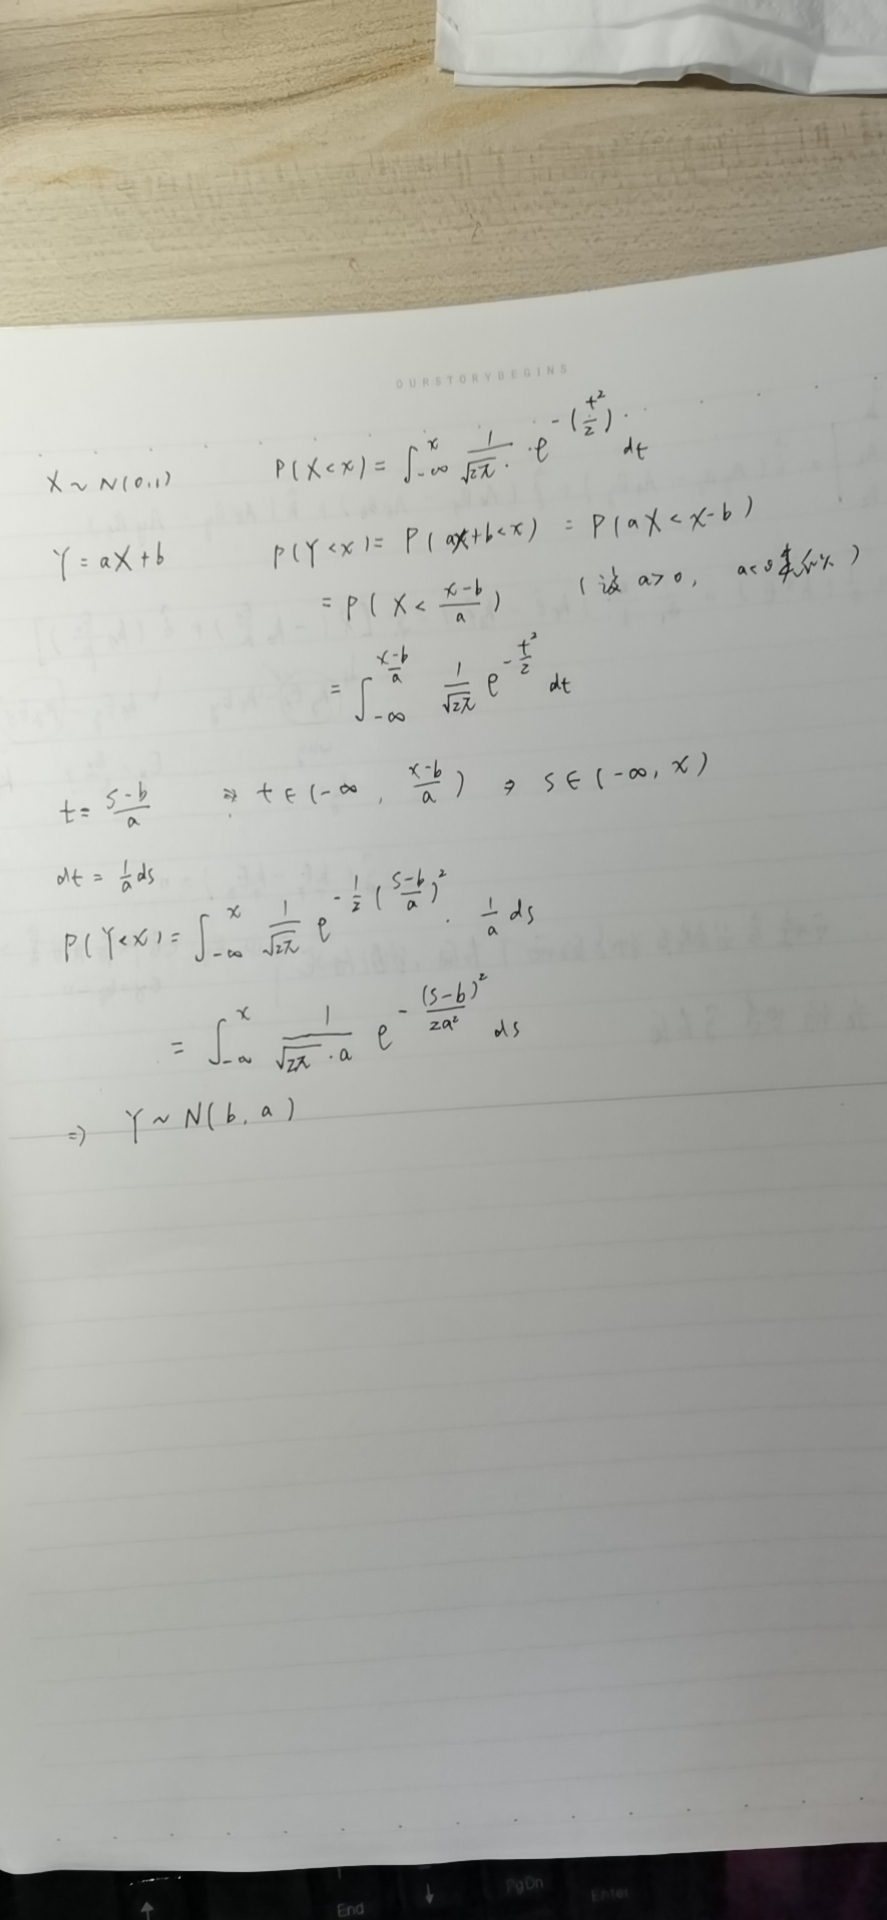 OURSTORYBEGINS
X ~ N(0,1) P(X<x) = ∫_{-∞}^{x} \frac{1}{\sqrt{2π}} · e^{-(\frac{t^2}{2})} dt
Y = aX+b P(Y<x) = P(aX+b<x) = P(aX<x-b)
= P(X < \frac{x-b}{a}) (设 a>0, a<0类似)
= ∫_{-∞}^{\frac{x-b}{a}} \frac{1}{\sqrt{2π}} e^{-\frac{t^2}{2}} dt
t = \frac{s-b}{a} ⇒ t ∈ (-∞, \frac{x-b}{a}) ⇒ s ∈ (-∞, x)
dt = \frac{1}{a} ds
P(Y<x) = ∫_{-∞}^{x} \frac{1}{\sqrt{2π}} e^{-\frac{1}{2}(\frac{s-b}{a})^2} · \frac{1}{a} ds
= ∫_{-∞}^{x} \frac{1}{\sqrt{2π}·a} e^{-\frac{(s-b)^2}{2a^2}} ds
⇒ Y ~ N(b, a)
↑
End
↓
PgDn
Enter